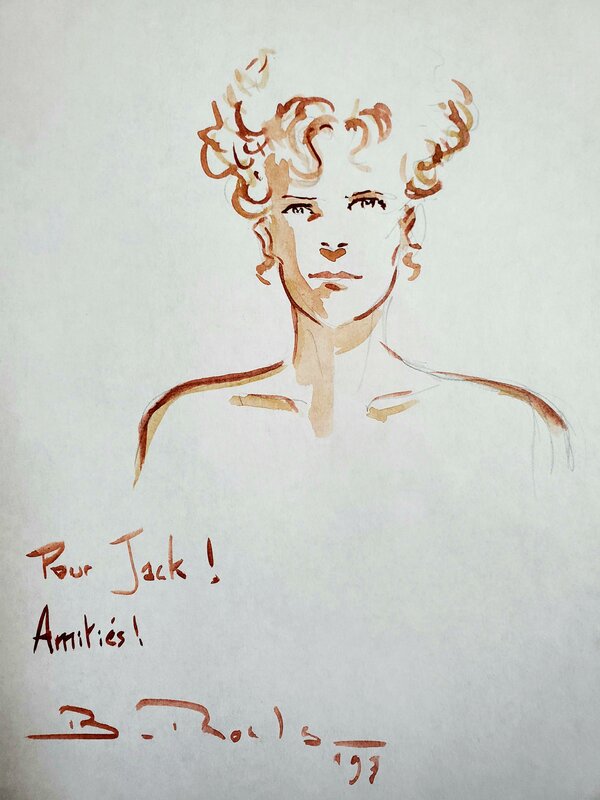 Pour Jack !
Amitiés !
B.
'97